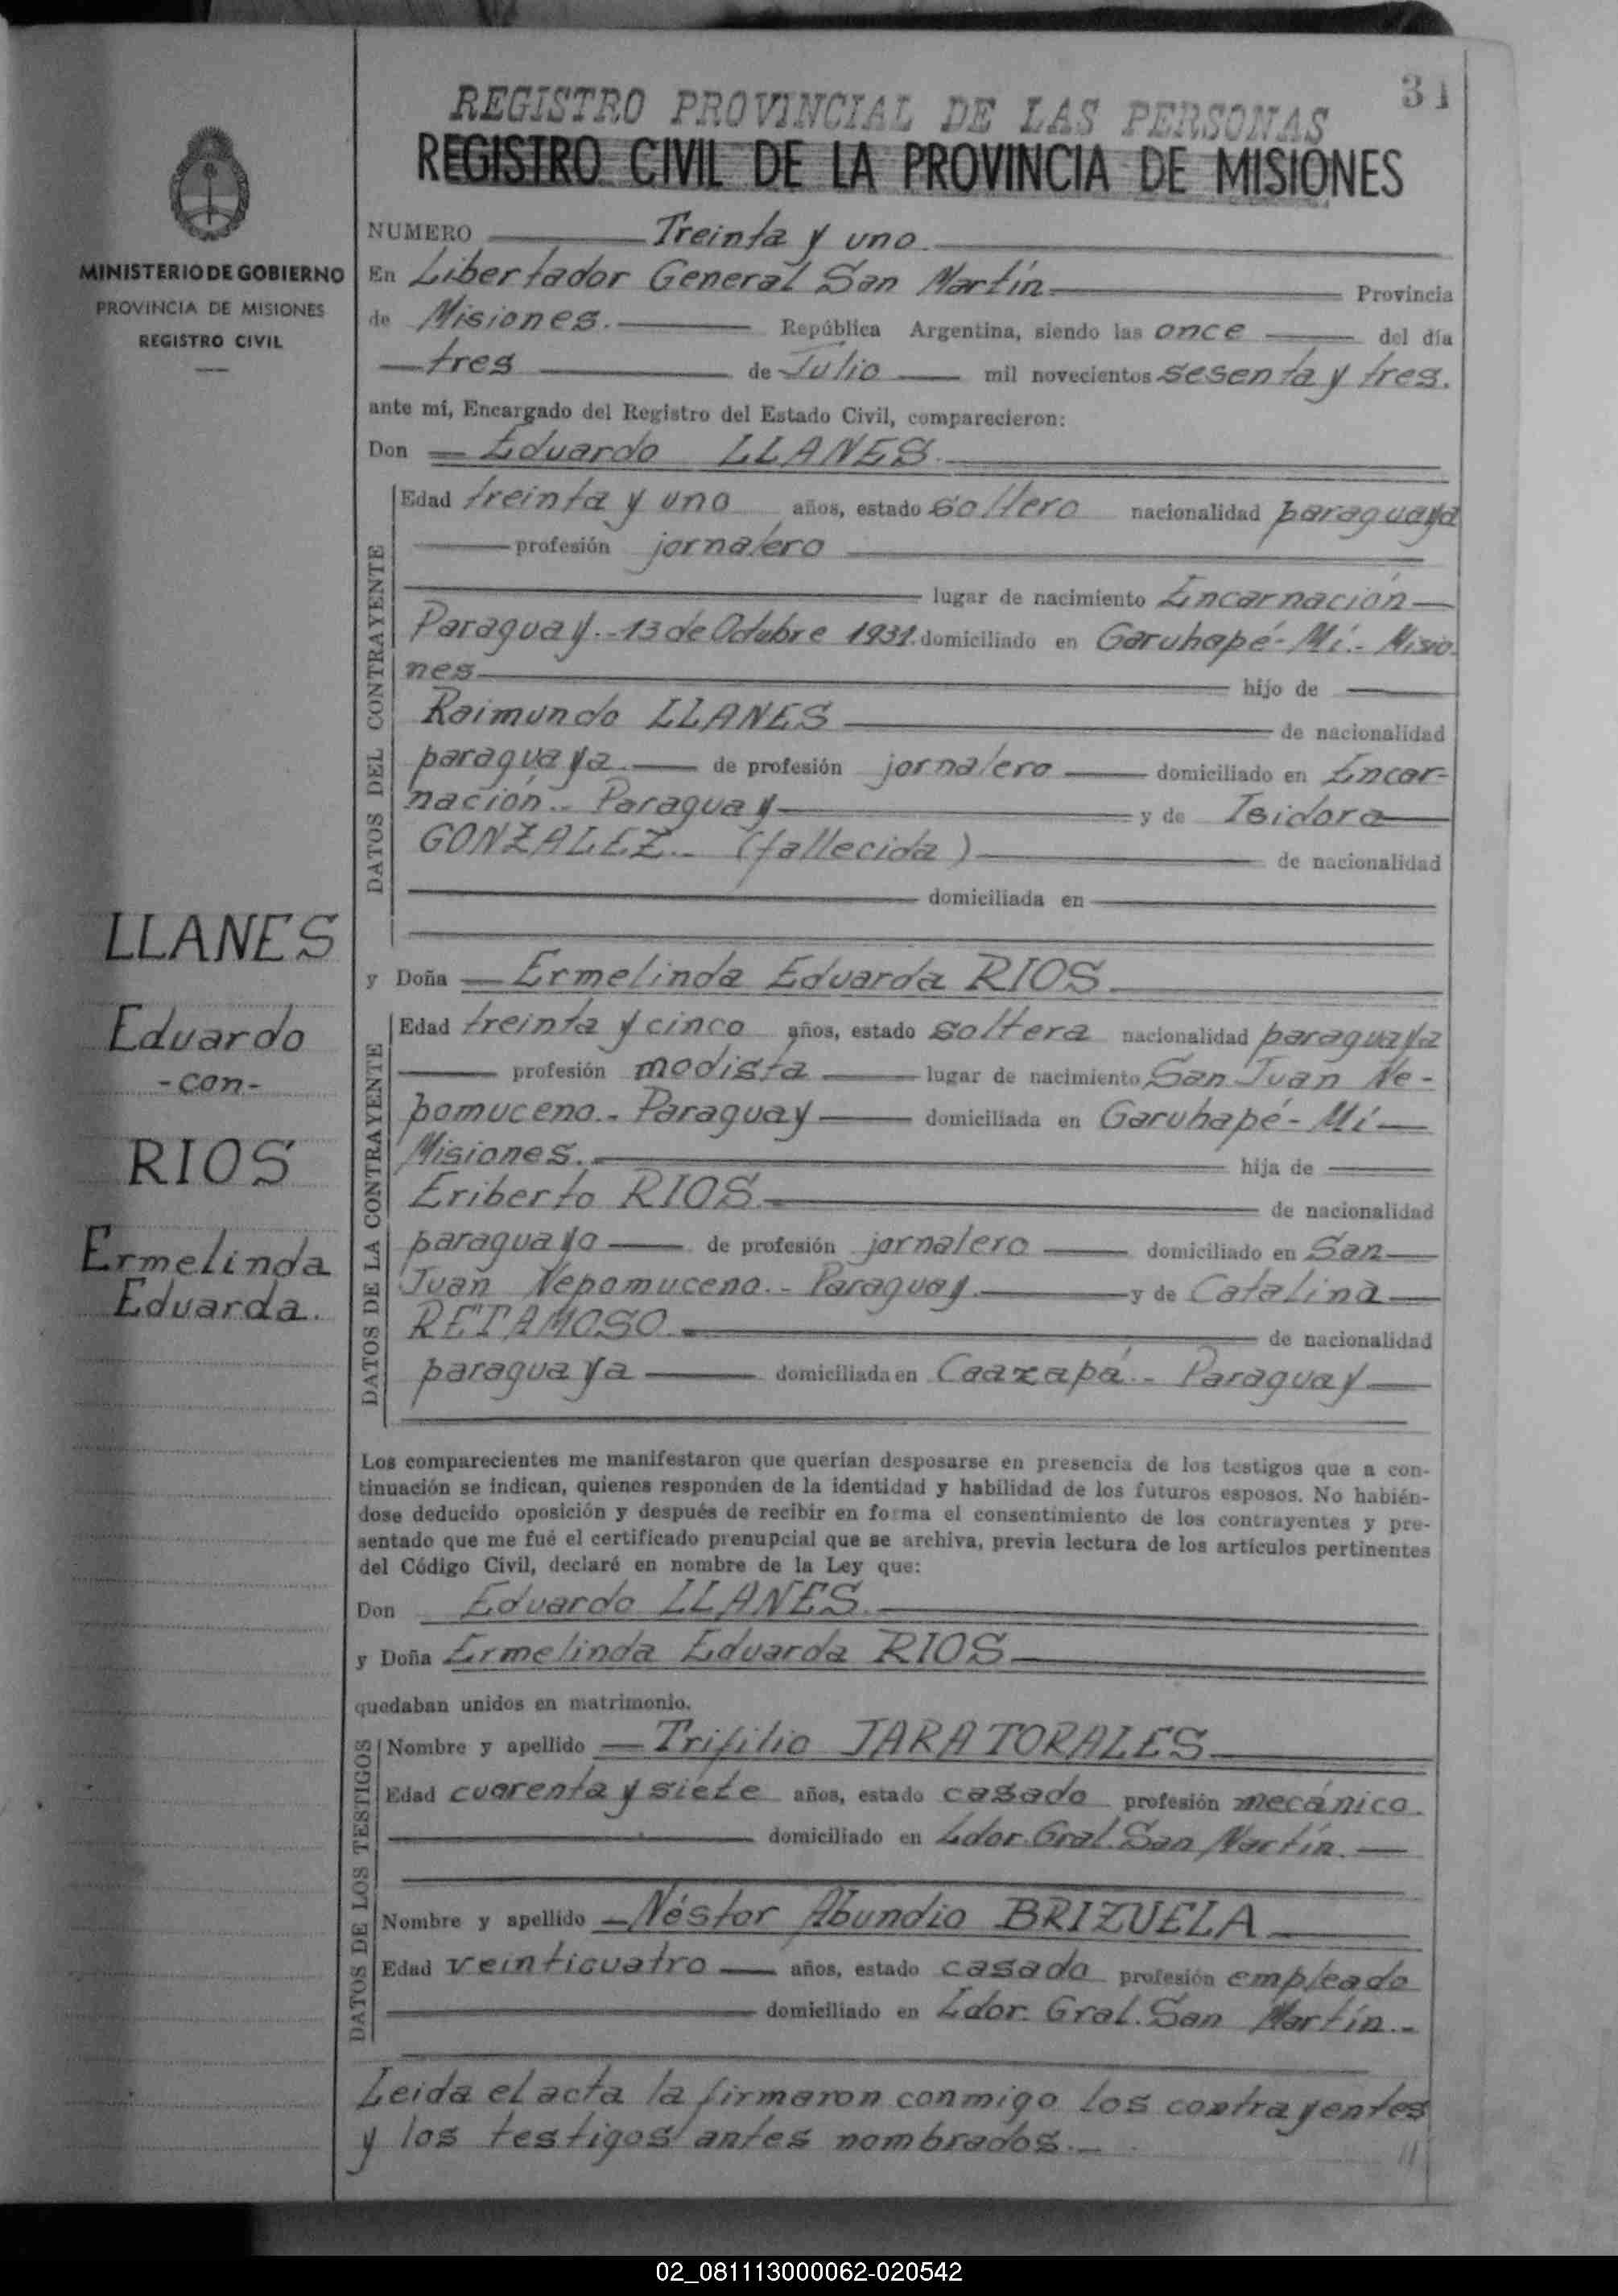 31
REGISTRO PROVINCIAL DE LAS PERSONAS
REGISTRO CIVIL DE LA PROVINCIA DE MISIONES
MINISTERIO DE GOBIERNO
PROVINCIA DE MISIONES
REGISTRO CIVIL
LLANES
Eduardo
-con-
RIOS
Ermelinda
Eduarda.
NUMERO Treinta y uno
En Libertador General San Martín Provincia
de Misiones. República Argentina, siendo las once del día
tres de Julio mil novecientos sesenta y tres.
ante mí, Encargado del Registro del Estado Civil, comparecieron:
Don Eduardo LLANES
DATOS DEL CONTRAYENTE
Edad treinta y uno años, estado soltero nacionalidad paraguaya
profesión jornalero
lugar de nacimiento Encarnación
Paraguay.-13 de Octubre 1931. domiciliado en Garuhapé-Mí.- Misio
nes hijo de
Raimundo LLANES de nacionalidad
paraguaya. de profesión jornalero domiciliado en Encar-
nación.- Paraguay y de Isidora
GONZALEZ.- (fallecida) de nacionalidad
domiciliada en
y Doña Ermelinda Eduarda RIOS
DATOS DE LA CONTRAYENTE
Edad treinta y cinco años, estado soltera nacionalidad paraguaya
profesión modista lugar de nacimiento San Juan Ne-
pomuceno.- Paraguay domiciliada en Garuhapé-Mí
Misiones. hija de
Eriberto RIOS. de nacionalidad
paraguayo de profesión jornalero domiciliado en San
Juan Nepomuceno.- Paraguay. y de Catalina
RETAMOSO de nacionalidad
paraguaya domiciliada en Caazapá.- Paraguay
Los comparecientes me manifestaron que querían desposarse en presencia de los testigos que a con-
tinuación se indican, quienes responden de la identidad y habilidad de los futuros esposos. No habién-
dose deducido oposición y después de recibir en forma el consentimiento de los contrayentes y pre-
sentado que me fué el certificado prenupcial que se archiva, previa lectura de los artículos pertinentes
del Código Civil, declaré en nombre de la Ley que:
Don Eduardo LLANES
y Doña Ermelinda Eduarda RIOS
quedaban unidos en matrimonio.
DATOS DE LOS TESTIGOS
Nombre y apellido Trifilio JARA TORALES
Edad cuarenta y siete años, estado casado profesión mecánico.
domiciliado en Ldor. Gral. San Martín.
Nombre y apellido Néstor Abundio BRIZUELA
Edad veinticuatro años, estado casado profesión empleado
domiciliado en Ldor. Gral. San Martín.-
Leida el acta la firmaron conmigo los contrayentes
y los testigos antes nombrados.-
02_081113000062-020542